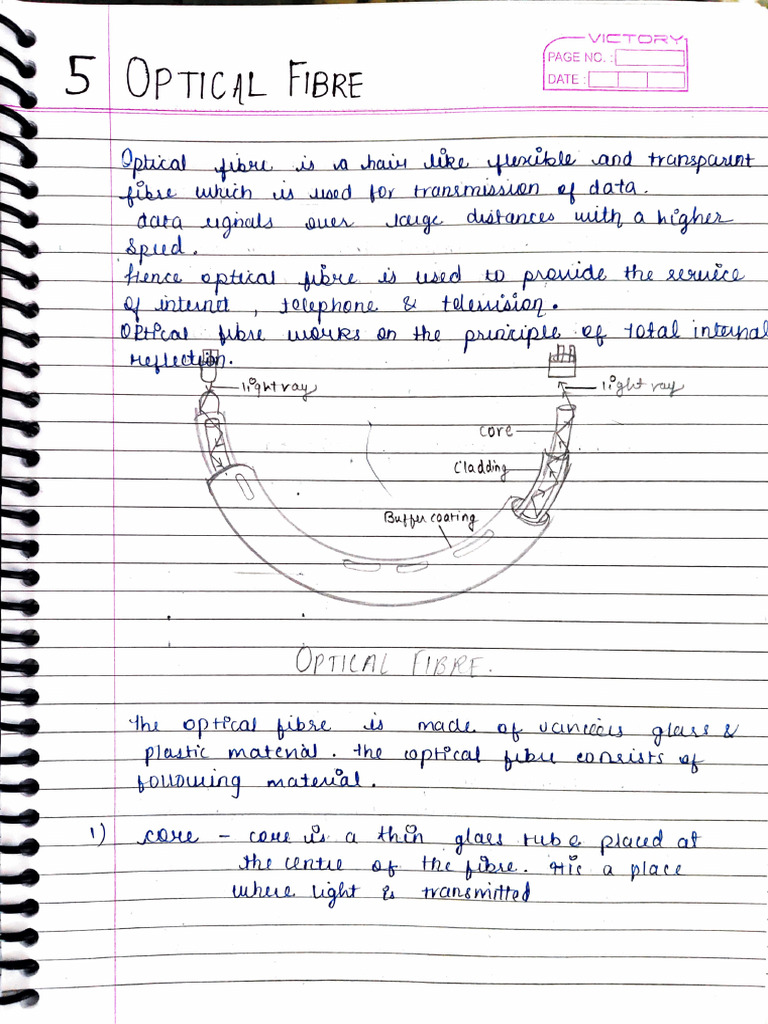 VICTORY
PAGE NO. :
DATE :
5 OPTICAL FIBRE
Optical fibre is a hair like flexible and transparent
fibre which is used for transmission of data.
data signals over large distances with a higher
speed.
Hence optical fibre is used to provide the service
of internet , telephone & television.
Optical fibre works on the principle of total internal
reflection.
light ray
light ray
core
Cladding
Buffer coating
OPTICAL FIBRE.
the optical fibre is made of various glass &
plastic material. the optical fibre consists of
following material.
1) core - core is a thin glass tube placed at
the centre of the fibre. It is a place
where light is transmitted